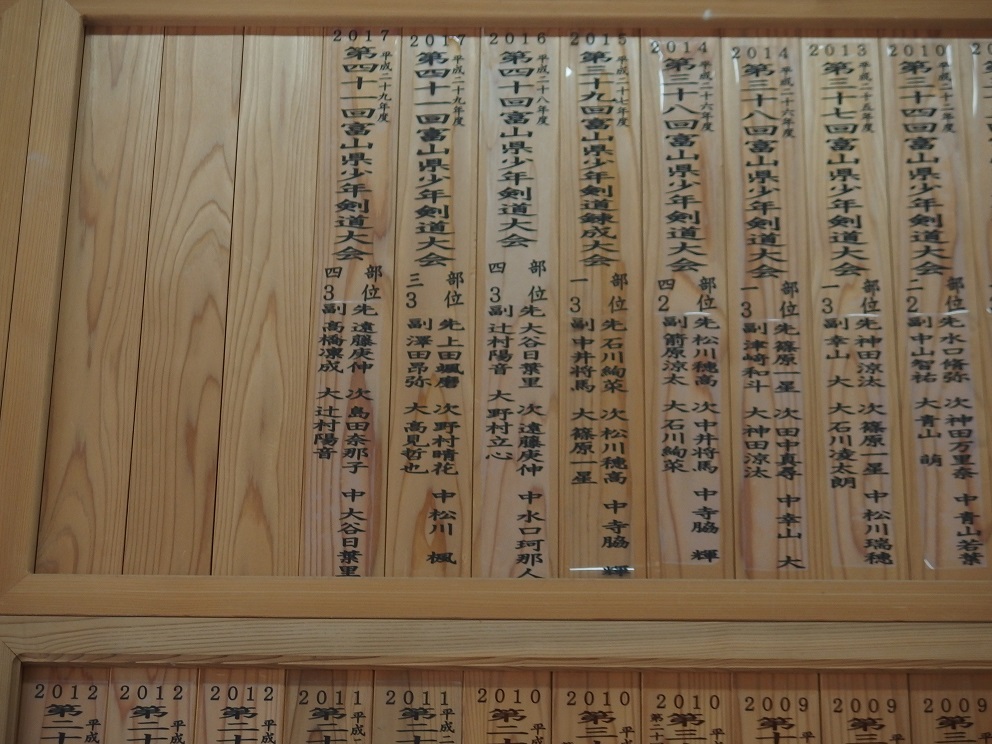 2010
平成二十二年度
第三十四回富山県少年剣道大会
二部
2位
先 水口脩弥 次 神田万里奈 中 青山若葉
副 中山智祐 大 青山 萌
2013
平成二十五年度
第三十七回富山県少年剣道大会
一部
3位
先 神田涼汰 次 篠原一星 中 松川瑞穂
副 幸山 大 大 石川凌太朗
2014
平成二十六年度
第三十八回富山県少年剣道大会
一部
3位
先 篠原一星 次 田中真尋 中 幸山 大
副 津崎和斗 大 神田涼汰
2014
平成二十六年度
第三十八回富山県少年剣道大会
四部
2位
先 松川穂高 次 中井将馬 中 寺脇 輝
副 箭原涼太 大 石川絢菜
2015
平成二十七年度
第三十九回富山県少年剣道錬成大会
一部
3位
先 石川絢菜 次 松川穂高 中 寺脇 輝
副 中井将馬 大 篠原一星
2016
平成二十八年度
第四十回富山県少年剣道大会
四部
3位
先 大谷日葉里 次 遠藤庚伸 中 水口珂那人
副 辻村陽音 大 野村立心
2017
平成二十九年度
第四十一回富山県少年剣道大会
三部
3位
先 上田颯磨 次 野村晴花 中 松川 楓
副 澤田昂弥 大 高見哲也
2017
平成二十九年度
第四十一回富山県少年剣道大会
四部
3位
先 遠藤庚伸 次 島田奈那子 中 大谷日葉里
副 高橋凛成 大 辻村陽音
2009
平成
第三
2009
平
第三
2009
平
第十
2010
平
第三十
2010
平
第三
2010
平
第十
2011
平成
第三十
2011
平成二
第三十
2012
平成
第二十
2012
平成
第二十
2012
平成
第二十